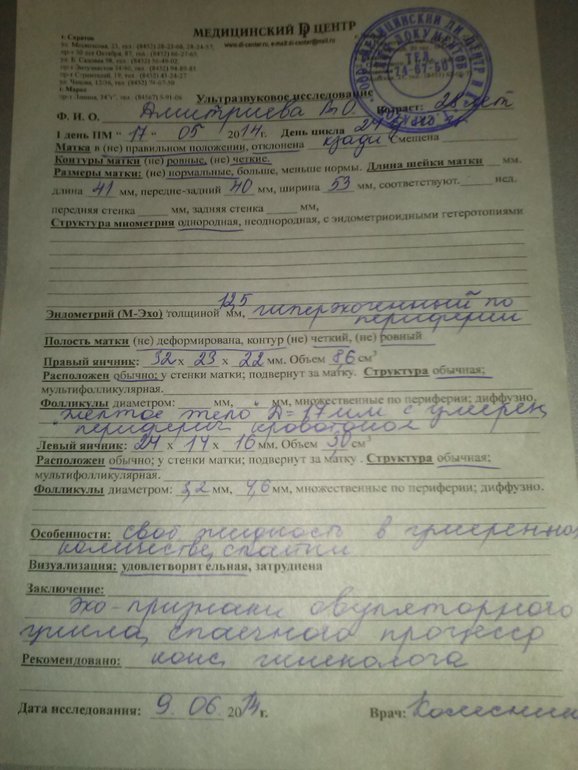 МЕДИЦИНСКИЙ ДИ ЦЕНТР
www.di-center.ru, e-mail:di-center@mail.ru
г. Саратов
г. Маркс
Ультразвуковое исследование
Ф. И. О. Дмитриева Возраст: 28 лет
1 день ПМ " 17 " 05 2014г. День цикла 24
Матка в (не) правильном положении, отклонена кзади смещена
Контуры матки (не) ровные, (не) четкие.
Размеры матки: (не) нормальные, больше, меньше нормы. Длина шейки матки мм.
длина 41 мм, передне-задний 40 мм, ширина 53 мм, соответствуют. нед.
передняя стенка мм, задняя стенка мм,
Структура миометрия однородная, неоднородная, с эндометриоидными гетеротопиями
Эндометрий (М-Эхо) толщиной 12,5 мм, гиперэхогенный по
периферии
Полость матки (не) деформирована, контур (не) четкий, (не) ровный
Правый яичник: 32 х 23 х 22 мм. Объем 8,6 см3
Расположен обычно; у стенки матки; подвернут за матку. Структура обычная;
мультифолликулярная.
Фолликулы диаметром: мм, мм, множественные по периферии; диффузно.
желтое тело D=17 мм с умерен
перифер. кровотоком
Левый яичник: 24 х 14 х 16 мм, Объем см3
Расположен обычно; у стенки матки; подвернут за матку. Структура обычная;
мультифолликулярная.
Фолликулы диаметром: 3,2 мм, 4,6 мм, множественные по периферии; диффузно.
Особенности: своб жидкость в умеренном
количестве, спайки
Визуализация: удовлетворительная, затруднена
Заключение:
эхо-признаки овуляторного
цикла, спаечного процесса
Рекомендовано: конс гинеколога
Дата исследования: 9. 06. 2014г. Врач: